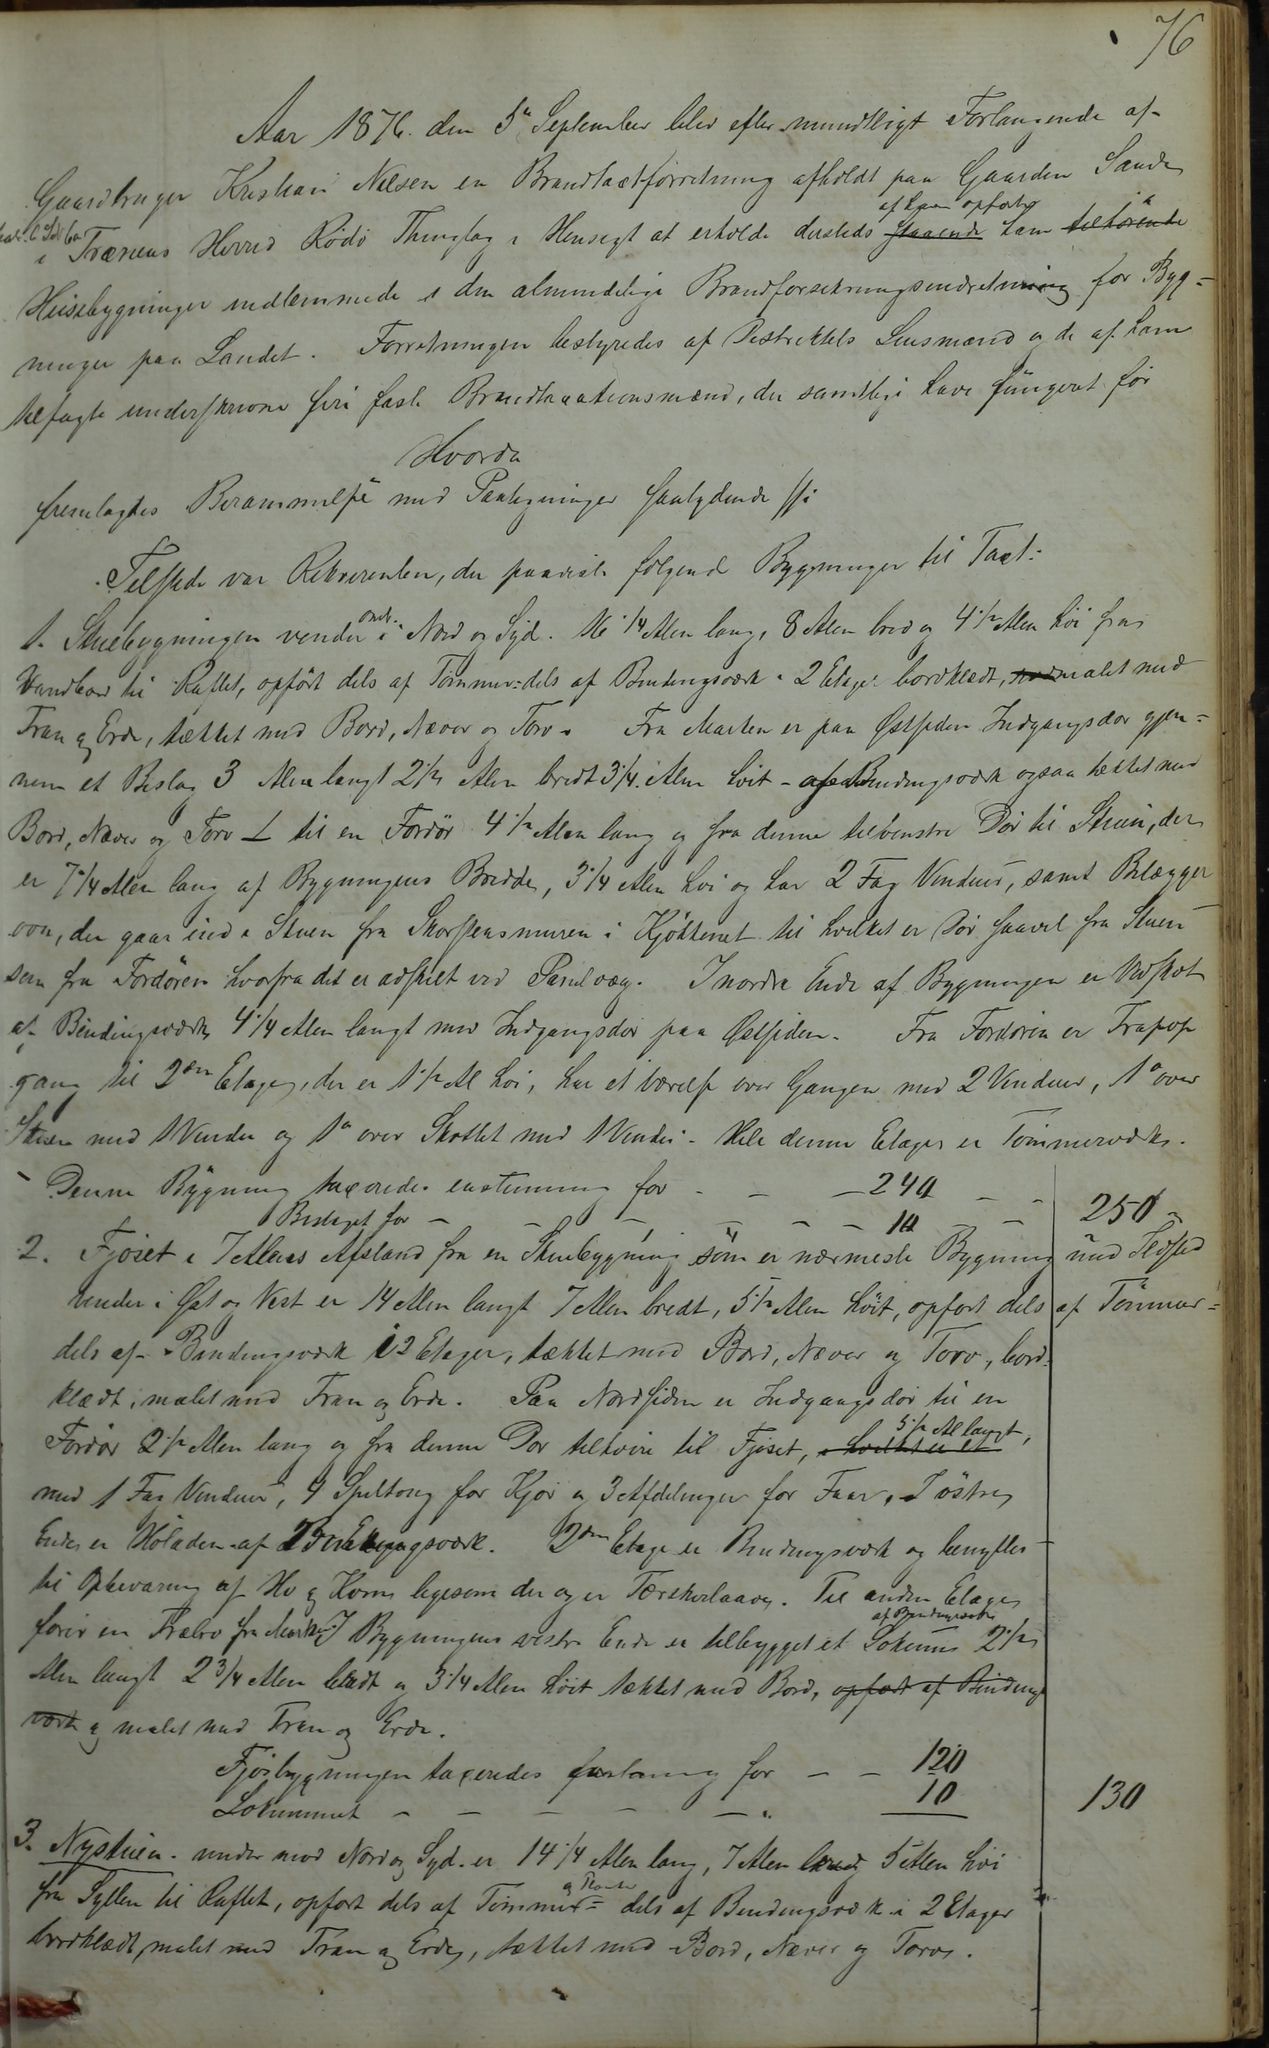 76
Aar 1876 den 5te September blev efter mundtligt Forlangende af
Gaardbruger Kristian Nilsen en Brandtaxtforretning afholdt paa Gaarden Sande
i Trænens Herred Rödö Thinglag i Hensigt at erholde dersteds staaende af ham opförte ham tilhörende
Huusbygninger indlemmede i den almindelige Brandforsikringsindretning for Byg-
ninger paa Landet. Forretningen bestyredes af Distriktets Lensmand og de af ham
tilsagte underskrevne fire faste Brandtaxationsmænd, der samtlige have fungeret för
Hvorda
fremlagdes Berammelse med Paategninger saalydende
Tilstede var Rekvirenten, der paaviste fölgende Bygninger til Taxt:
1. Stuebygningen vender i Nord og Syd. 16 1/4 Alen lang, 8 Alen bred og 4 1/2 Alen höi fra
Vandbord til Raftet, opfört dels af Tömmer- dels af Bindingsværk i 2 Etager bordklædt, malet med
Tran og Erde, tækket med Bord, Næver og Torv. Fra Marken er paa Østsiden Indgangsdör gjen-
nem et Bislag 3 Alen langt 2 1/2 Alen bredt 3 1/4 Alen höit - af Bindingsværk ogsaa tækket med
Bord, Næver og Torv - til en Fordör 4 1/2 Alen lang og fra denne tilvenstre Dör til Stuen, der
er 7 1/4 Alen lang af Bygningens Bredde, 3 1/4 Alen höi og har 2 Fag Vinduer, samt Bilægger
ovn, der gaar ind i Stuen fra Skorstensmuren i Kjökkenet til hvilket er Dör saavel fra Stuen
som fra Fordören hvorfra det er adskilt ved Panelvæg. I nordre Ende af Bygningen er Vedskot
af Bindingsværk 4 1/4 Alen langt med Indgangsdör paa Østsiden. Fra Fordören er Trapop
gang til 2den Etage, der er 1 1/2 Al höi, har et værelse over Gangen med 2 Vinduer, 1 do over
Stuen med 1 Vindu og 1 do over Skottet med 1 Vindu. Hele denne Etage er Tömmerværk.
Denne Bygning taxeredes enstemmig for - - - 240 - - 250
Bislaget for - - - - - 10 -
2. Fjöset i 7 Alens Afstand fra en Stuebygning som er nærmeste Bygning med Ildsted
vender i Øst og Vest er 14 Alen langt 7 Alen bredt, 5 1/2 Alen höit, opfört dels af Tömmer-
dels af Bindingsværk i 2 Etager, tækket med Bord, Næver og Torv, bord-
klædt, malet med Tran og Erde. Paa Nordsiden er Indgangsdör til en
Fordör 2 1/2 Alen lang og fra denne Dör tilhöire til Fjöset, i hvilket er et 5 1/2 Al langt,
med 1 Fag Vinduer, 4 Spiltoug for Kjör og 3 Afdelinger for Faar. I östre
Ende er Höladen af Bindingsværk. 2den Etage er Bindingsværk og benyttes
til Opbevaring af Hö og Korn ligesom der og er Tærskerlaave. Til anden Etage
förer en Træbro fra Marken. I Bygningens vestre Ende er tilbygget et Lokum af Bindingsværk 2 1/2
Alen langt 2 3/4 Alen bredt og 3 1/4 Alen höit tækket med Bord, opfört af Bindings
værk og malet med Tran og Erde.
Fjösbygningen taxeredes for - - 120
Lokummet - - - - - " 10 130
3. Nystuen - vender mod Nord og Syd. er 14 1/4 Alen lang, 7 Alen bred 5 Alen höi
fra Syllen til Raftet, opfört dels af Tömmer og Planker dels af Bindingsværk i 2 Etager
bordklædt, malet med Tran og Erde, tækket med Bord, Næver og Torv.